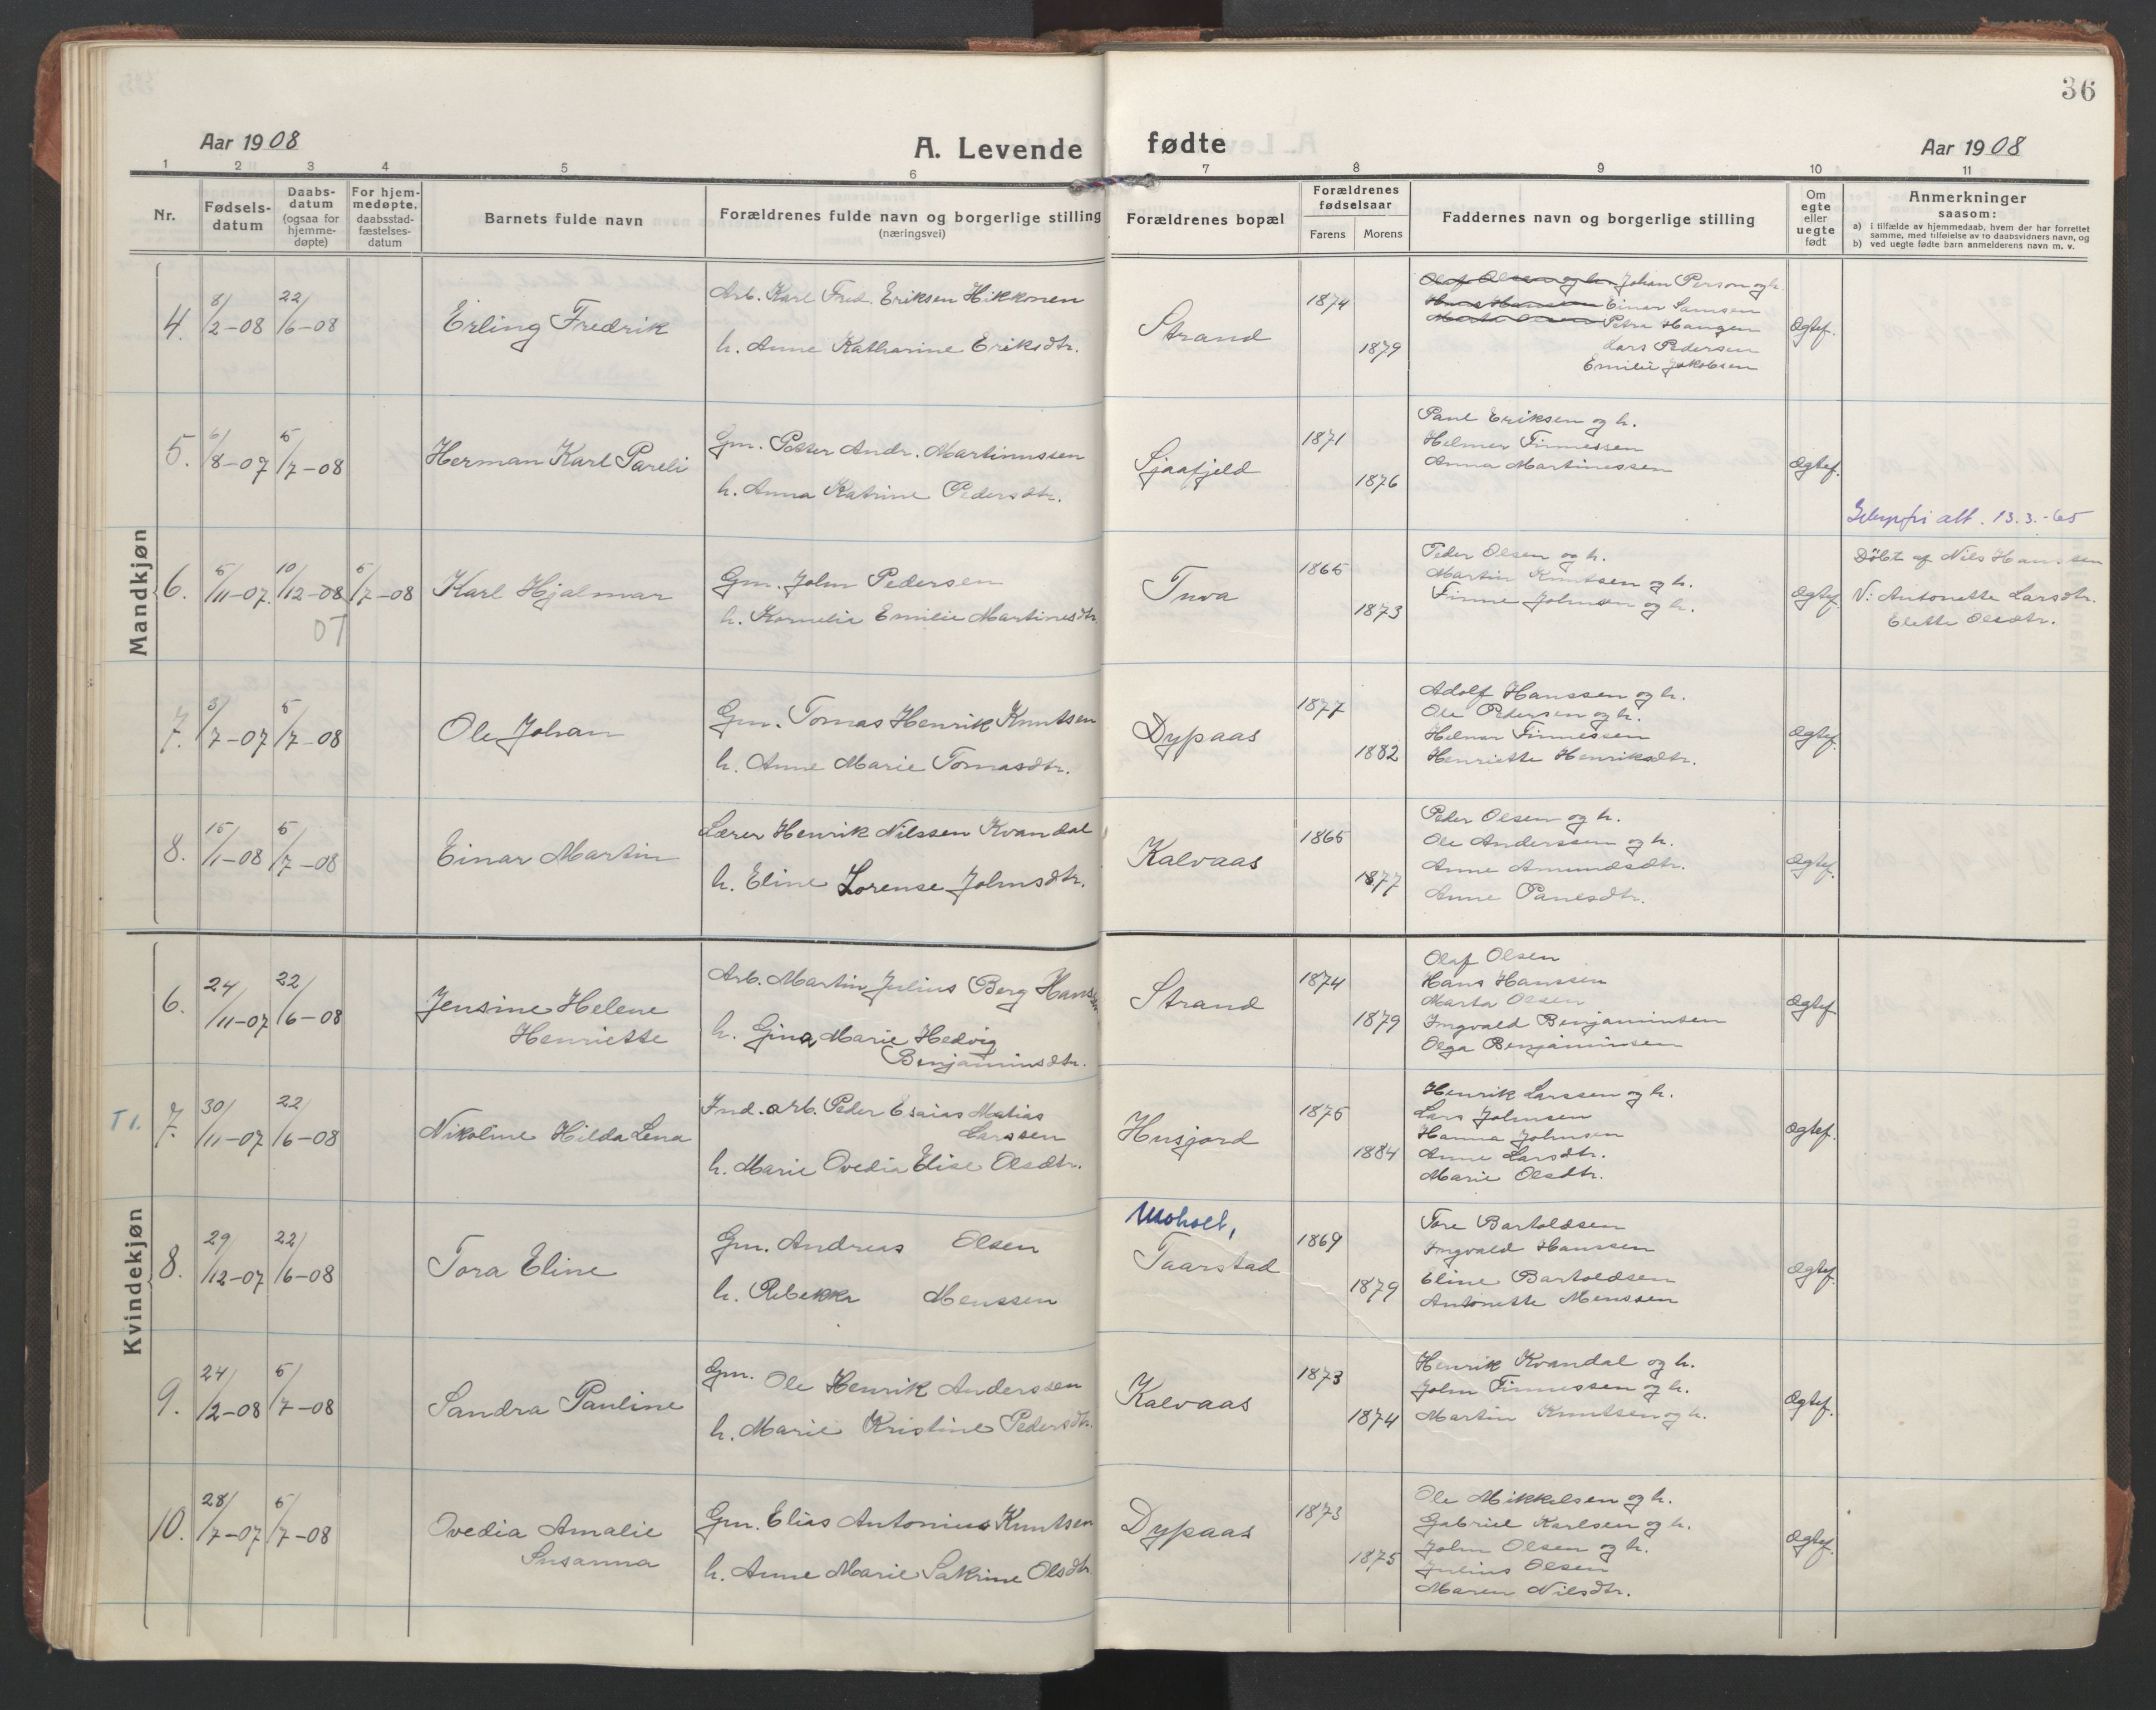 36
Aar 1908
A. Levende fødte
Aar 1908
1 2 3 4 5 6 7 8 9 10 11
Nr.
Fødsels-
datum
Daabs-
datum
(ogsaa for
hjemme-
døpte)
For hjem-
medøpte,
daabsstad-
fæstelses-
datum
Barnets fulde navn
Forældrenes fulde navn og borgerlige stilling
(næringsvei)
Forældrenes bopæl
Forældrenes
fødselsaar
Farens Morens
Faddernes navn og borgerlige stilling
Om
egte
eller
uegte
født
Anmerkninger
saasom:
a) i tilfælde av hjemmedaab, hvem der har forrettet
samme, med tilføielse av to daabsvidners navn, og
b) ved uegte fødte barn anmelderens navn m. v.
Mandkjøn
4. 8/2-08 22/6-08
Erling Fredrik
Arb. Karl Fred. Eriksen Hikkonen
h. Anne Katharine Eriksdtr.
Strand
1874
1879
Olaf Olsen og h. Johan Person og h.
Hans Hanssen Einar Samsen
Marta Olsen Petra Haugen
Lars Pedersen
Emilie Jakobsen
Ægtef.
5. 6/8-07 5/7-08
Herman Karl Pareli
Gm. Petter Andr. Martinussen
h. Anna Katrine Pedersdtr.
Sjaafjeld
1871
1876
Paul Eriksen og h.
Helmer Finnessen
Anna Martinessen
Ægtef.
att. 13.3.-65
6. 5/11-07. 10/12-08 5/7-08
07
Karl Hjalmar
Gm. John Pedersen
h. Kornelie Emilie Martinesdtr.
Tuva
1865
1873
Peder Olsen og h.
Martin Knutsen og h.
Finne Johnsen og h.
Ægtef.
Döbt af Nils Hanssen
V: Antonette Larsdtr.
Elette Olsdtr.
7. 3/7-07 5/7-08
Ole Johan
Gm. Tomas Henrik Knutsen
h. Anne Marie Tomasdtr.
Dypaas
1877
1882
Adolf Hanssen og h.
Ole Pedersen og h.
Helmer Finnessen
Henriette Henriksdtr.
Ægtef.
8. 15/1-08 5/7-08
Einar Martin
Lærer Henrik Nilssen Kvandal
h. Eline Lorense Johnsdtr.
Kalvaas
1865
1877
Peder Olsen og h.
Ole Anderssen og h.
Anne Amundsdtr.
Anne Paulsdtr.
Ægtef.
Kvindekjøn
6. 24/11-07 22/6-08
Jensine Helene
Henriette
Arb. Martin Julius Berg Hanssen
h. Gina Marie Hedvig
Benjaminsdtr.
Strand
1874
1879
Olaf Olsen
Hans Hanssen
Marta Olsen
Ingvald Benjaminsen
Olga Benjaminsen
Ægtef.
T 1.
7. 30/11-07 22/6-08
Nikoline Hilda Lena
Ind. arb. Peder Esaias Matias
Larssen
h. Marie Ovedia Elise Olsdtr.
Husjord
1875
1884
Henrik Larssen og h.
Lars Johnsen
Hanna Johnsen
Anne Larsdtr.
Marie Olsdtr.
Ægtef.
8. 29/12-07 22/6-08
Tora Eline
Gm. Andreas Olsen
h. Rebekka Menssen
Moholt,
Taarstad
1869
1879
Tore Bartoldsen
Ingvald Hanssen
Eline Bartoldsen
Antonette Menssen
Ægtef.
9. 24/2-08 5/7-08
Sandra Pauline
Gm. Ole Henrik Anderssen
h. Marie Kristine Pedersdtr.
Kalvaas
1873
1874
Henrik Kvandal og h.
John Finnessen og h.
Martin Knutsen og h.
Ægtef.
10. 28/7-07 5/7-08
Ovedia Amalie
Susanna
Gm. Elias Antonius Knutsen
h. Anne Marie Sakrine Olsdtr.
Dypaas
1873
1875
Ole Mikkelsen og h.
Gabriel Karlsen og h.
John Olsen og h.
Julius Olsen
Maren Nilsdtr.
Ægtef.